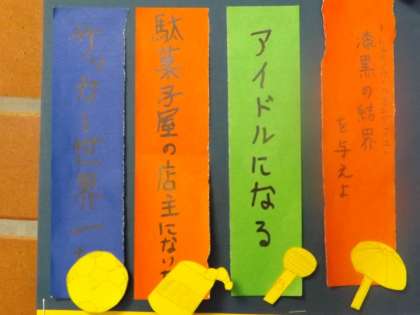 サッカー世界一
駄菓子屋の店主になりた
アイドルになる
漆黒の結界
を与えよ